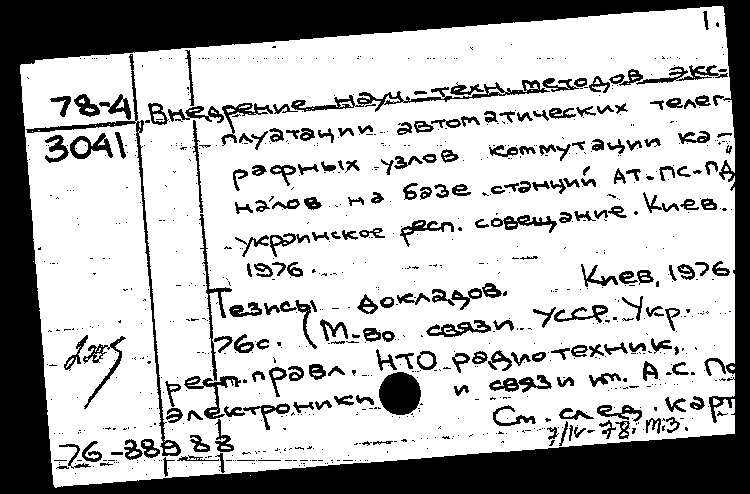 1.
78-4 "Внедрение науч.-техн. методов экс-
3041 плуатации автоматических телег-
рафных узлов коммутации ка-
налов на базе станций АТ-ПС-ПД"
украинское респ. совещание. Киев.
1976.
Тезисы докладов. Киев, 1976.
76с. (М-во связи УССР. Укр.
респ. правл. НТО радиотехник,
электроники и связи им. А.С. По
См. след. карт
7/IV-78. м.з.
76-88988